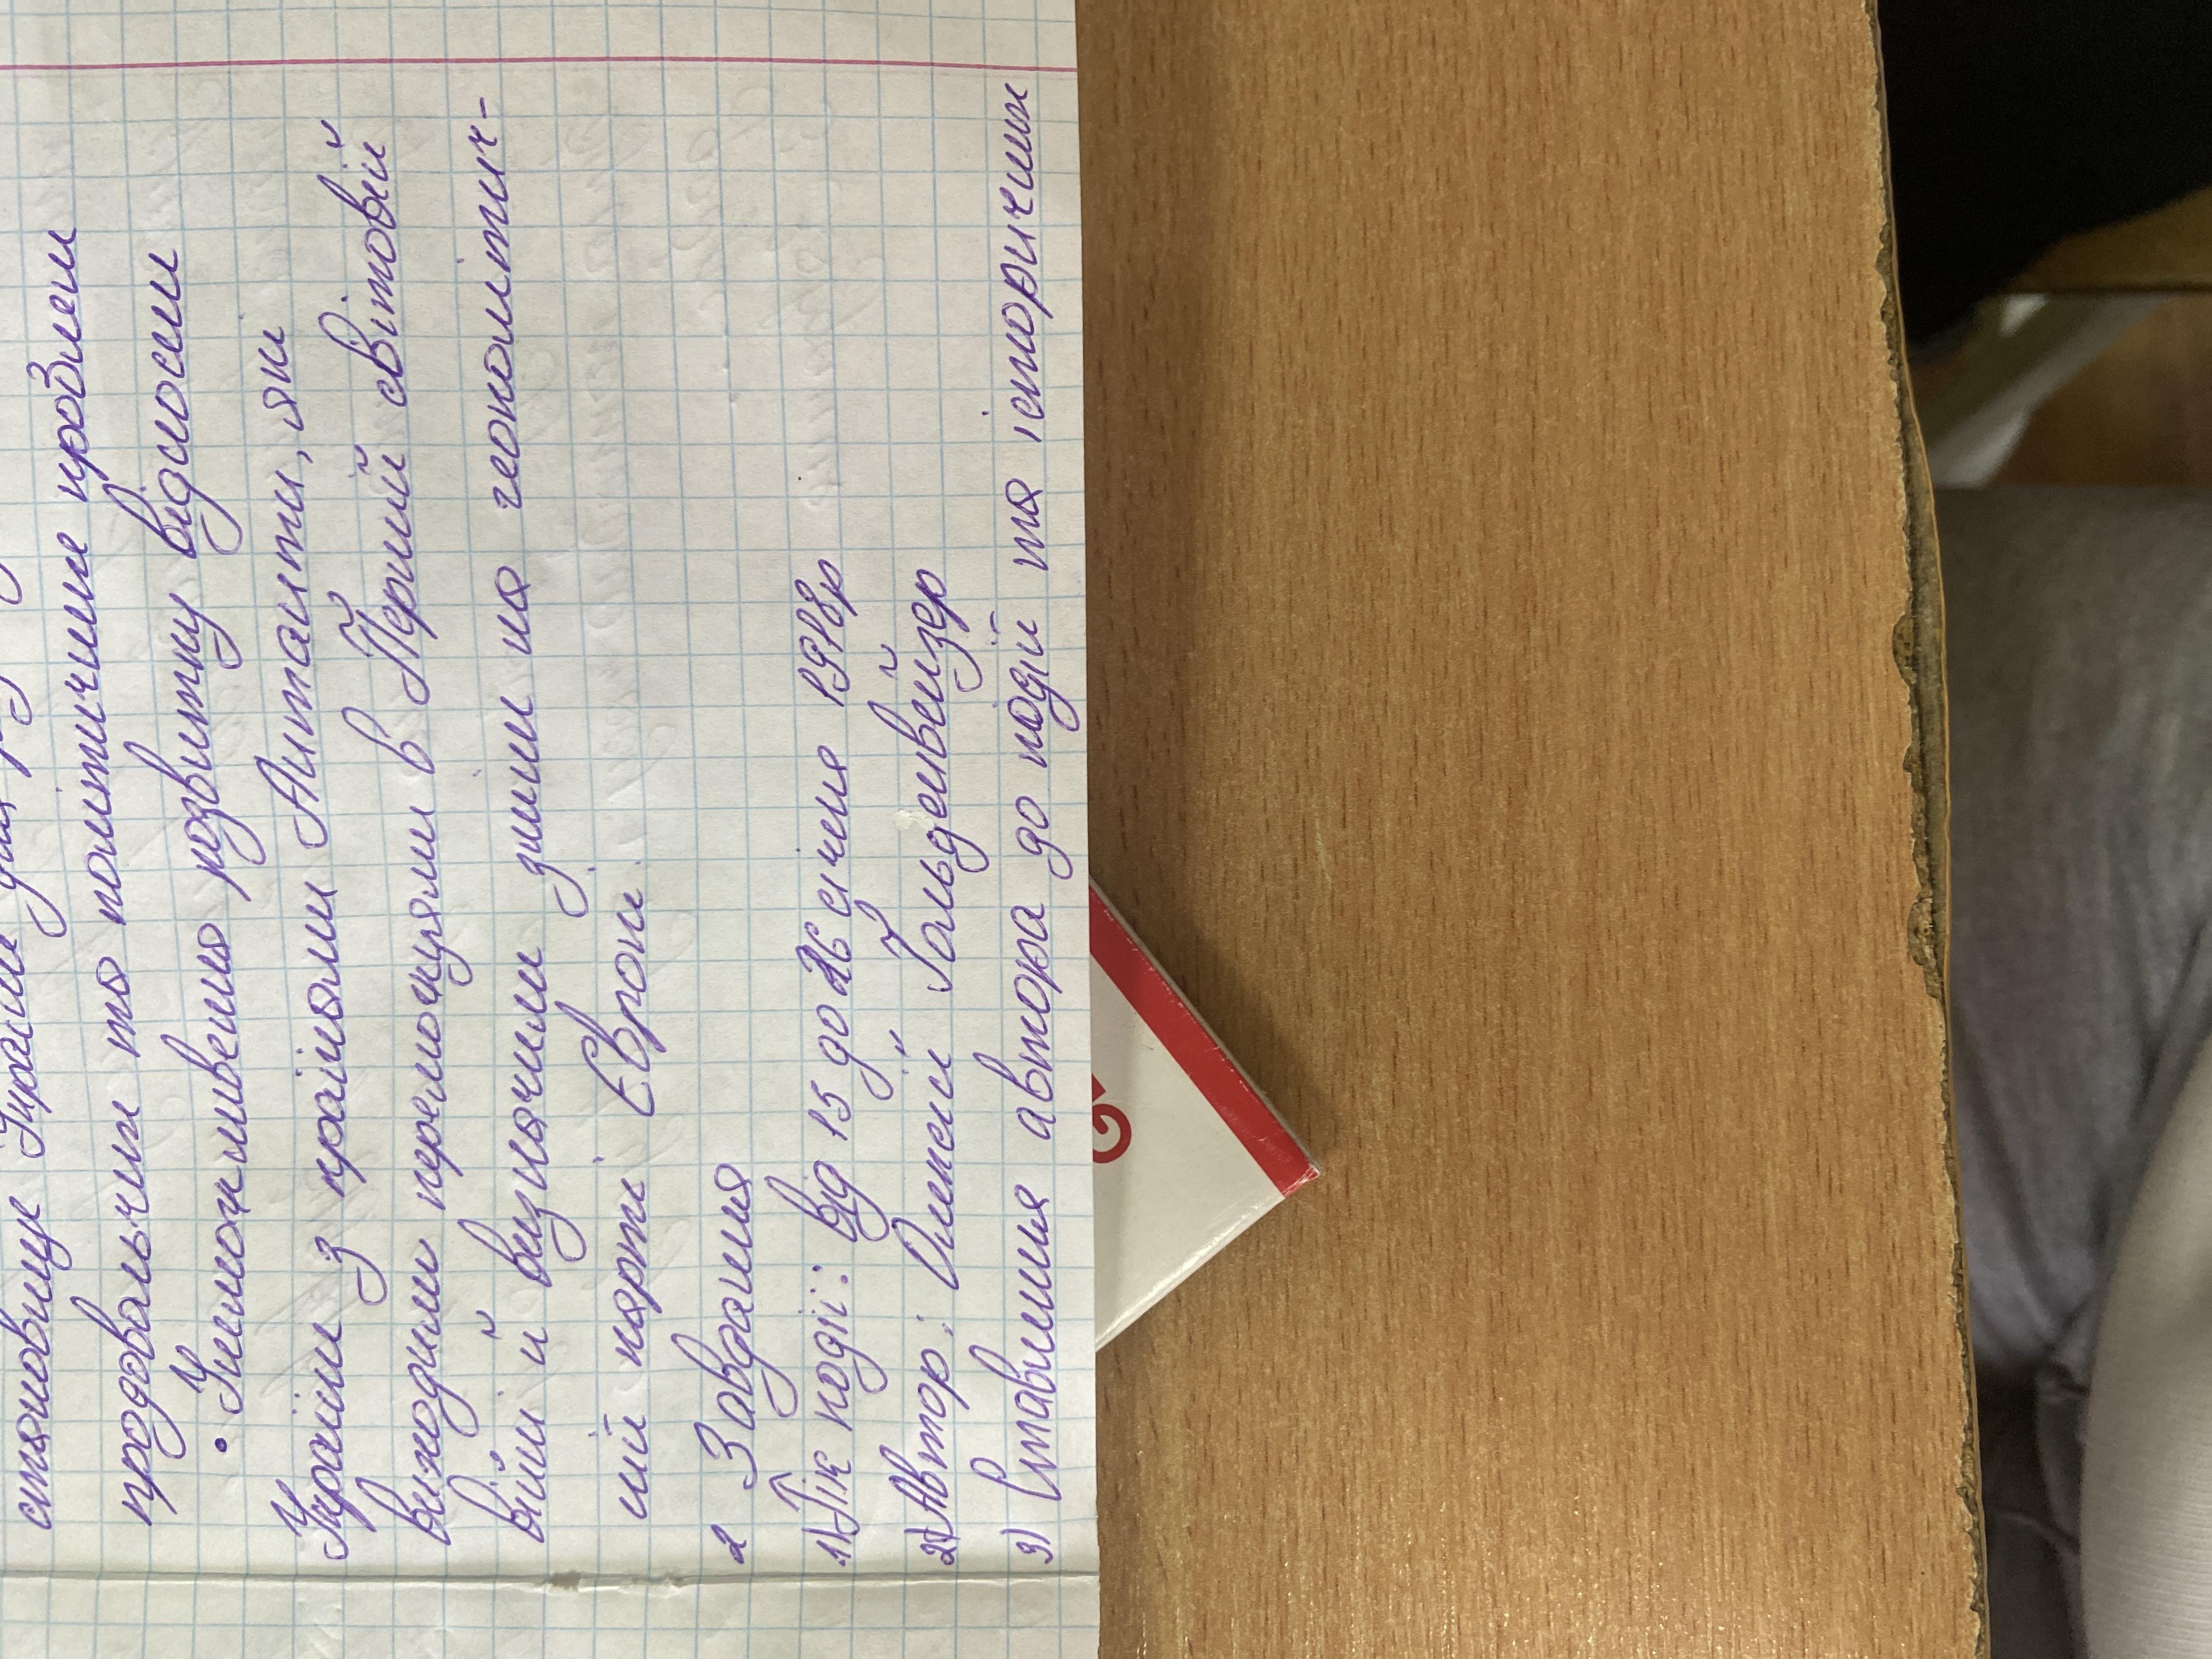 становище України для
продовольчих та політичних проблем
• Унеможливення розвитку відносин
України з країнами Антанти, які
виходили переможцями в Першій світовій
війні й визначили зміни на геополітич-
ній карті Європи.
2 Завдання
1) Рік події: Від 15 до 26 січня 1918р
2) Автор: Олексій Гольденвейзер
3) Ставлення автора до подій та історичних